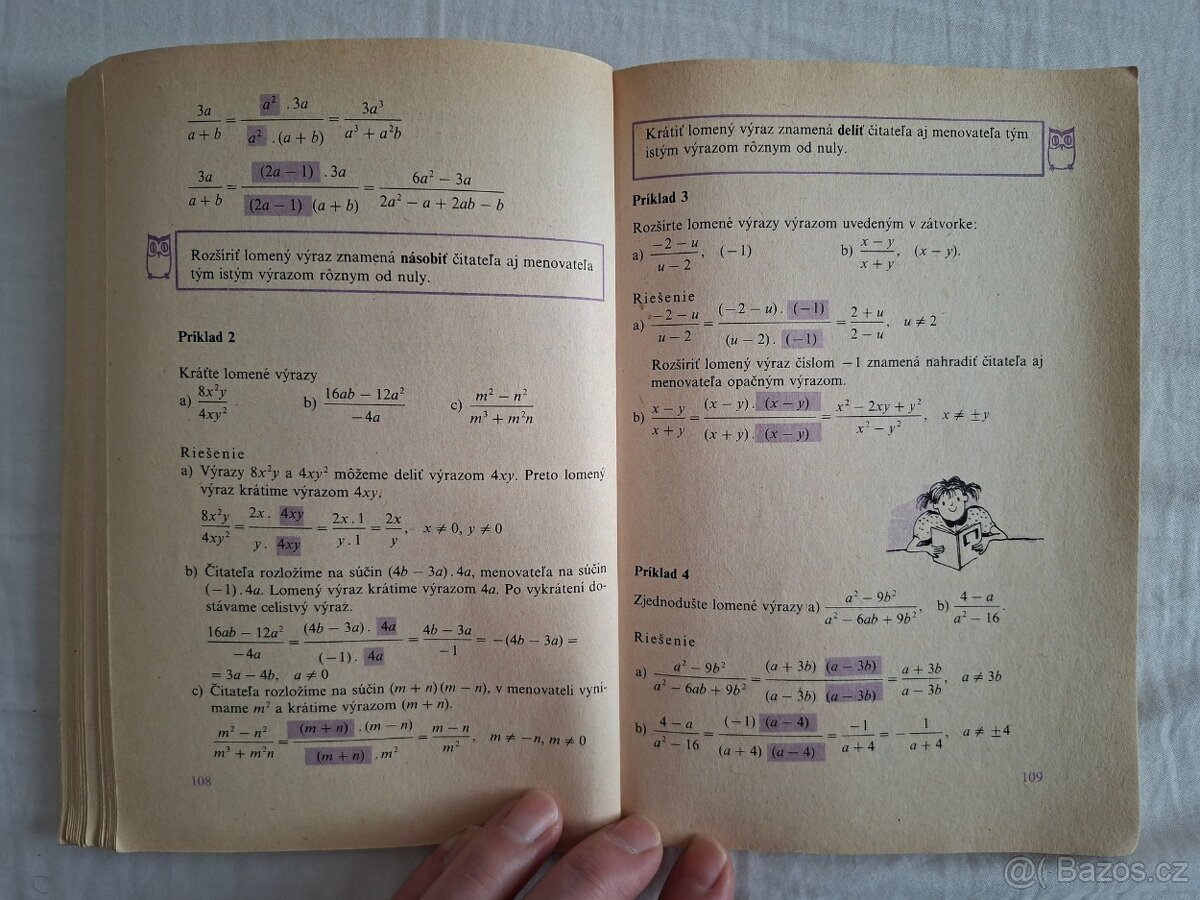 3a / (a + b) = a² . 3a / (a² . (a + b)) = 3a³ / (a³ + a²b)
3a / (a + b) = (2a − 1) . 3a / ((2a − 1) (a + b)) = (6a² − 3a) / (2a² − a + 2ab − b)
Rozšíriť lomený výraz znamená násobiť čitateľa aj menovateľa
tým istým výrazom rôznym od nuly.
Príklad 2
Kráťte lomené výrazy
a) 8x²y / 4xy² . b) (16ab − 12a²) / (−4a) c) (m² − n²) / (m³ + m²n)
Riešenie
a) Výrazy 8x²y a 4xy² môžeme deliť výrazom 4xy. Preto lomený
výraz krátime výrazom 4xy.
8x²y / 4xy² = 2x . 4xy / (y . 4xy) = 2x . 1 / (y . 1) = 2x / y, x ≠ 0, y ≠ 0
b) Čitateľa rozložíme na súčin (4b − 3a) . 4a, menovateľa na súčin
(−1) . 4a. Lomený výraz krátime výrazom 4a. Po vykrátení do-
stávame celistvý výraz.
(16ab − 12a²) / (−4a) = (4b − 3a) . 4a / ((−1) . 4a) = (4b − 3a) / (−1) = −(4b − 3a) =
= 3a − 4b, a ≠ 0
c) Čitateľa rozložíme na súčin (m + n)(m − n), v menovateli vyní-
mame m² a krátime výrazom (m + n).
(m² − n²) / (m³ + m²n) = (m + n) . (m − n) / ((m + n) . m²) = (m − n) / m², m ≠ −n, m ≠ 0
108
Krátiť lomený výraz znamená deliť čitateľa aj menovateľa tým
istým výrazom rôznym od nuly.
Príklad 3
Rozšírte lomené výrazy výrazom uvedeným v zátvorke:
a) (−2 − u) / (u − 2), (−1) b) (x − y) / (x + y), (x − y).
Riešenie
a) (−2 − u) / (u − 2) = (−2 − u) . (−1) / ((u − 2) . (−1)) = (2 + u) / (2 − u), u ≠ 2
Rozšíriť lomený výraz číslom −1 znamená nahradiť čitateľa aj
menovateľa opačným výrazom.
b) (x − y) / (x + y) = (x − y) . (x − y) / ((x + y) . (x − y)) = (x² − 2xy + y²) / (x² − y²), x ≠ ±y
Príklad 4
Zjednodušte lomené výrazy a) (a² − 9b²) / (a² − 6ab + 9b²), b) (4 − a) / (a² − 16).
Riešenie
a) (a² − 9b²) / (a² − 6ab + 9b²) = (a + 3b) (a − 3b) / ((a − 3b) (a − 3b)) = (a + 3b) / (a − 3b), a ≠ 3b
b) (4 − a) / (a² − 16) = (−1) (a − 4) / ((a + 4) (a − 4)) = −1 / (a + 4) = − 1 / (a + 4), a ≠ ±4
109
@( Bazos.cz